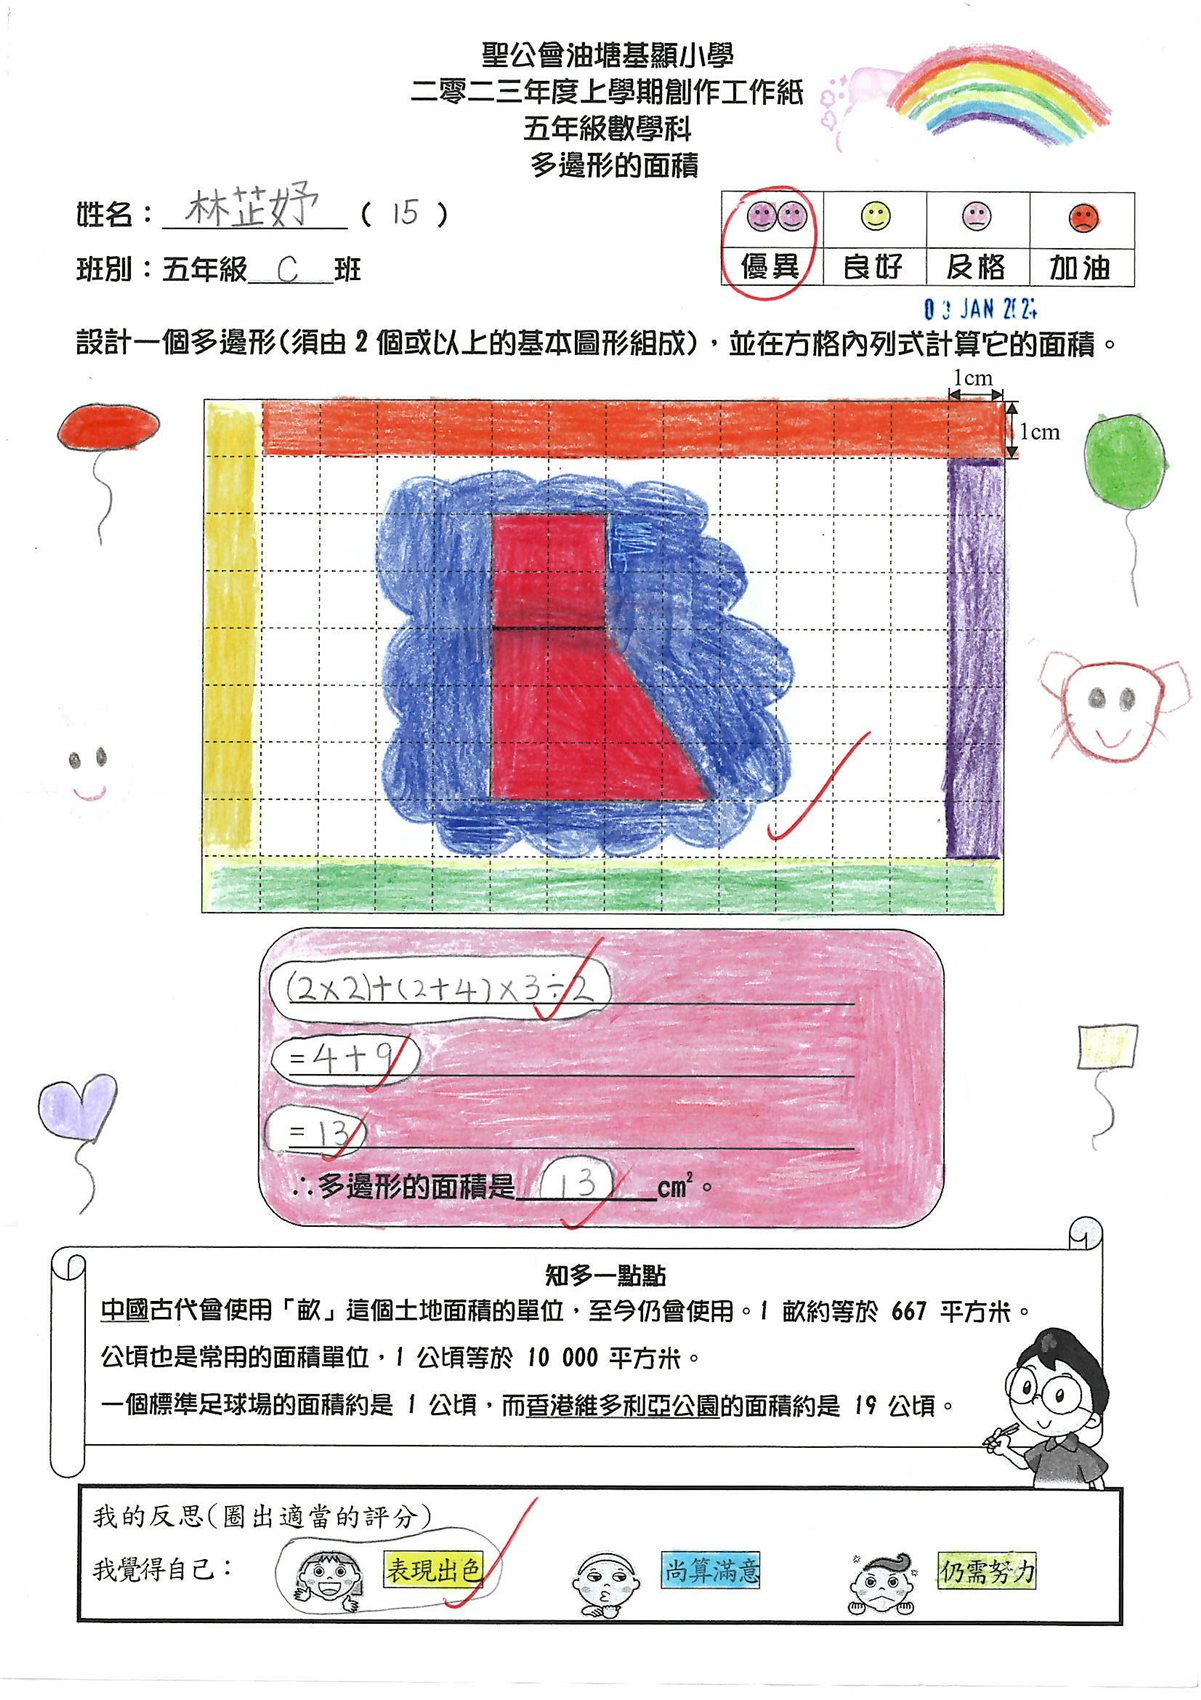 聖公會油塘基顯小學
二零二三年度上學期創作工作紙
五年級數學科
多邊形的面積
姓名：林芷妤（15）
班別：五年級C班
優異 良好 及格 加油
03 JAN 2024
設計一個多邊形(須由2個或以上的基本圖形組成)，並在方格內列式計算它的面積。
1cm
1cm
(2×2)+(2+4)×3÷2
=4+9
=13
∴多邊形的面積是13cm²。
知多一點點
中國古代會使用「畝」這個土地面積的單位，至今仍會使用。1 畝約等於 667 平方米。
公頃也是常用的面積單位，1 公頃等於 10 000 平方米。
一個標準足球場的面積約是 1 公頃，而香港維多利亞公園的面積約是 19 公頃。
我的反思(圈出適當的評分)
我覺得自己： 表現出色 尚算滿意 仍需努力